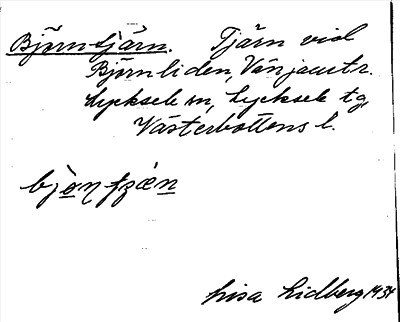 Björntjärn. Tjärn vid
Björnliden, Vänjaurtr.
Lycksele sn, Lycksele tg,
Västerbottens l.
Lisa Lidberg 1934